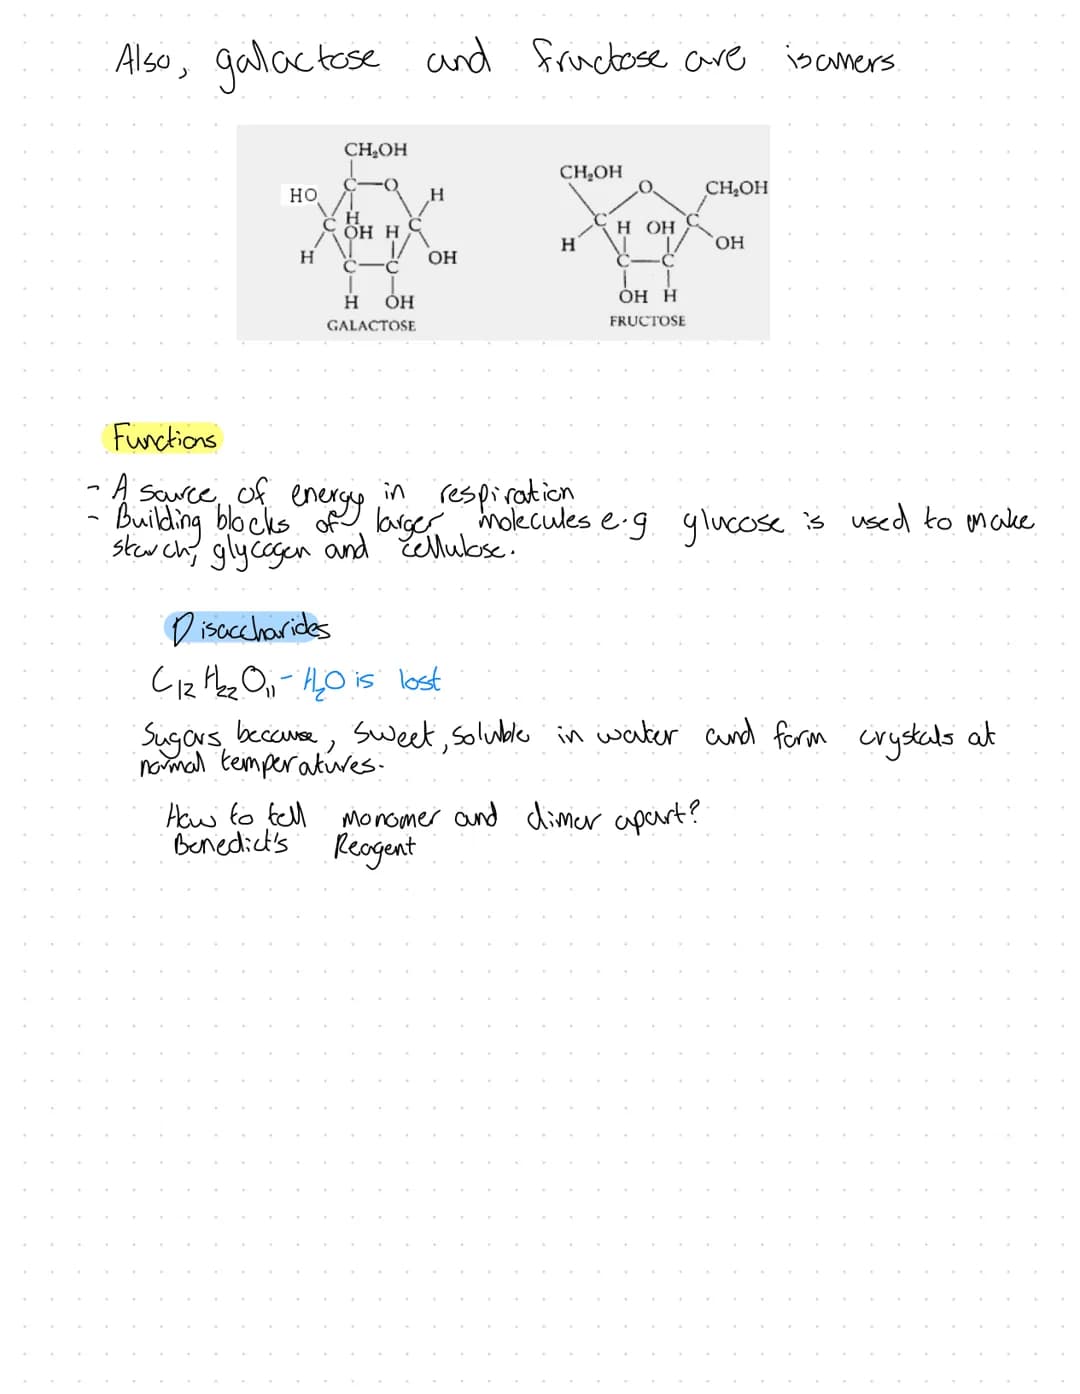 Also, galactose and fructose are isomers
CH₂OH
HO C O H
H
C OH H C
H C C OH
H OH
GALACTOSE
CH₂OH O CH₂OH
C H OH C
H C C OH
OH H
FRUCTOSE
Functions
- A source of energy in respiration
- Building blocks of larger molecules e.g glucose is used to make
starch, glycogen and cellulose.
Disaccharides
C₁₂H₂₂O₁₁ - H₂O is lost
Sugars because, sweet, soluble in water and form crystals at
normal temperatures.
How to tell monomer and dimer apart?
Benedict's Reagent